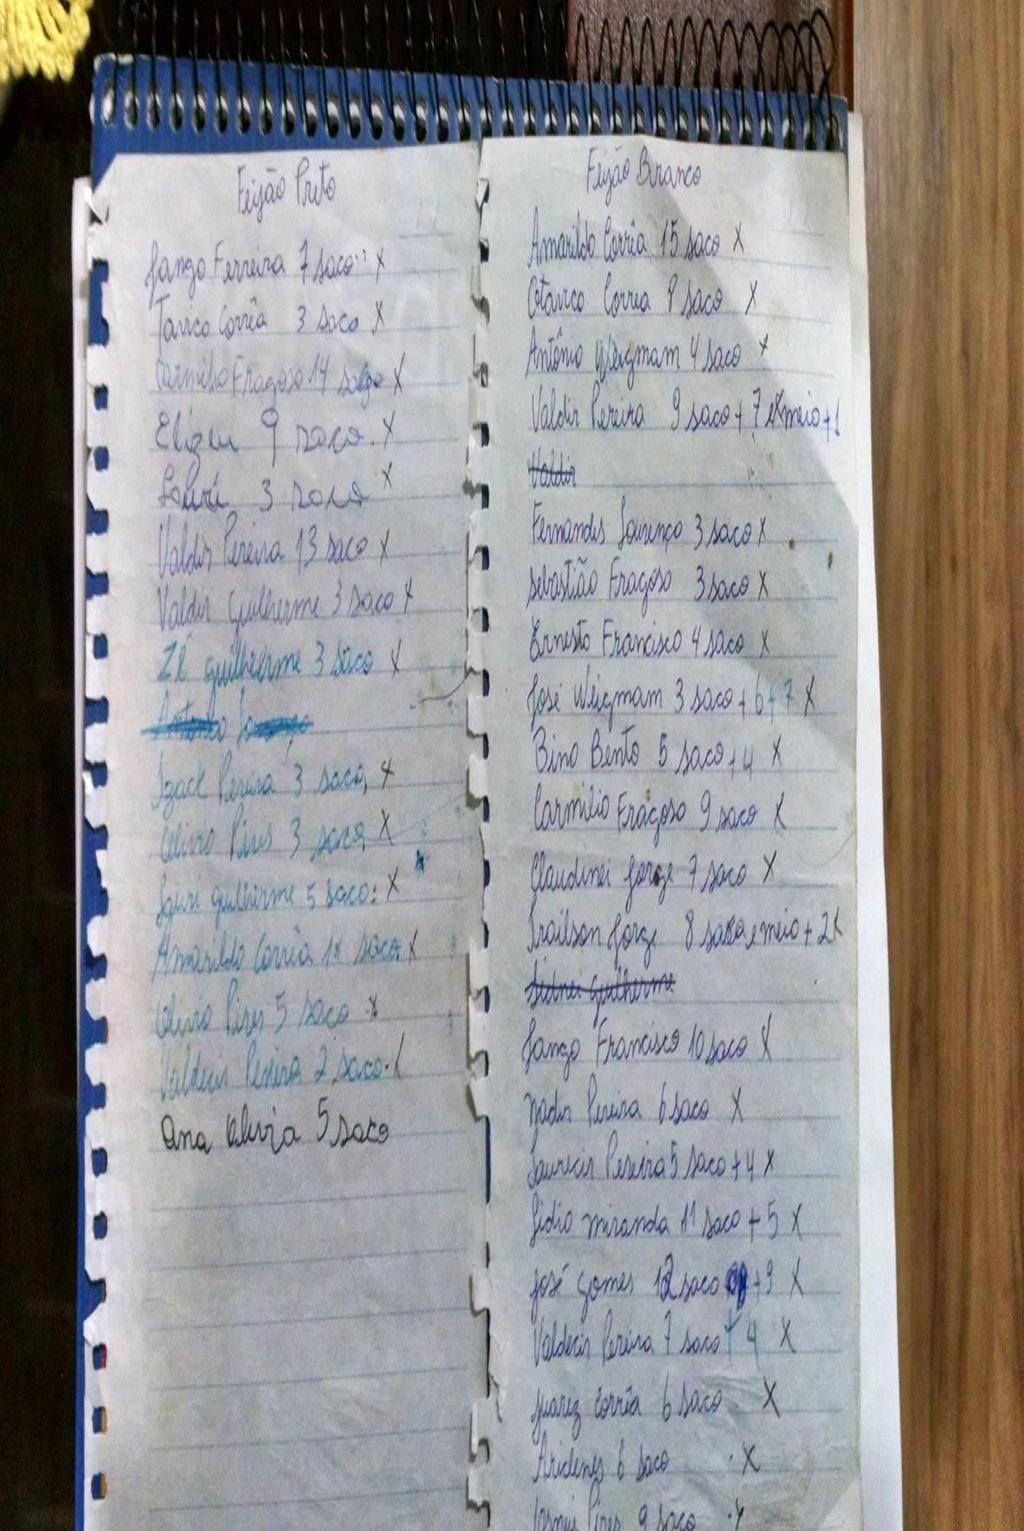 Feijão Preto
Jango Ferreira 7 saco x
Tavico Corrêa 3 saco x
Carmilio Fragoso 14 saco x
Elizeu 9 saco. x
Lauri 3 saco x
Valdir Pereira 13 saco x
Valdir guilherme 3 saco x
Zé guilherme 3 saco x
Izack Pereira 3 saco, x
Olivio Pires 3 saco, x
Lauri guilherme 5 saco: x
Amarildo Corrêa saco. x
Olivio Pires 5 saco x
Valdecir Pereira 2 saco. x
Ana Olivia 5 saco
Feijão Branco
Amarildo Corrêa 15 saco x
Otavico Correa 8 saco x
Antônio Weigmam 4 saco x
Valdir Pereira 9 saco + 7 e meio + 1
Valdir
Fernandes Lourenço 3 saco x
Sebastião Fragoso 3 saco x
Ernesto Francisco 4 saco x
José Weigmam 3 saco + 6 + 7 x
Bino Bento 5 saco + 4 x
Carmilio Fragoso 9 saco x
Claudinei Jorge 7 saco x
Joailson Jorge 8 saco e meio + 2 x
Sidnei guilherme
Jango Francisco 10 saco x
Nadir Pereira 6 saco x
Laurecir Pereira 5 saco + 4 x
Lidio miranda 11 saco + 5 x
José gomes 12 saco + 9 x
Valdecir Pereira 7 saco + 4 x
Juarez corrêa 6 saco x
Aridenes 6 saco x
Pires 9 saco x